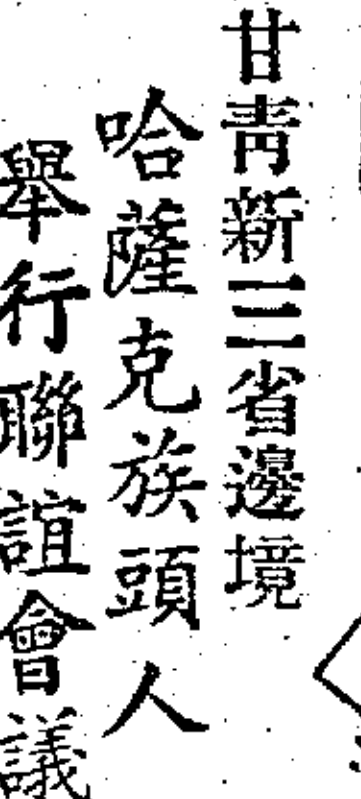 甘青新三省邊境
哈薩克族頭人
舉行聯誼會議